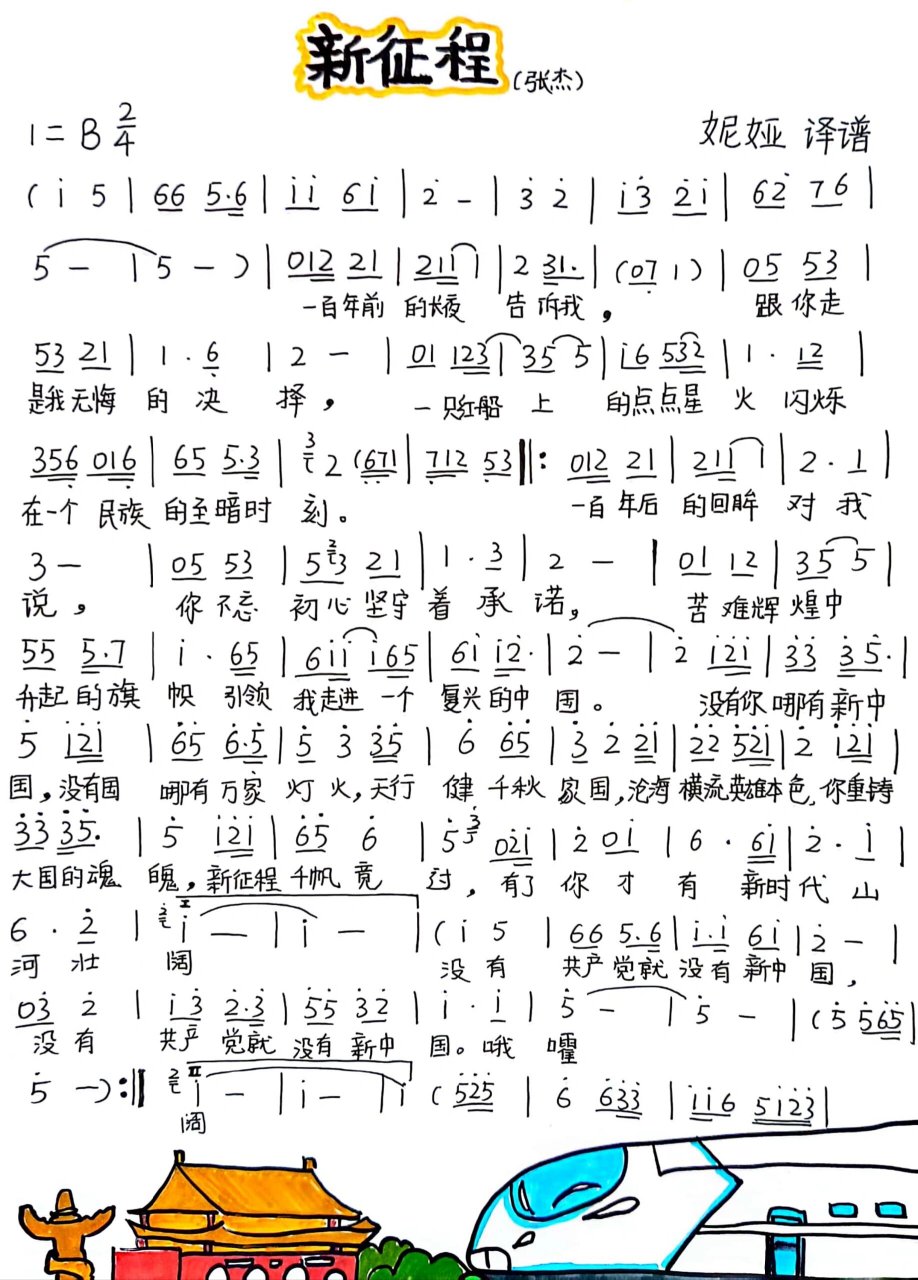 新征程(张杰)
1=B 2/4 妮娅 译谱
(i 5 | 66 5·6 | i i 6 i | 2 - | 3 2 | i3 2i | 62 76 |
5 - | 5 - ) | 012 21 | 211 1 | 2 31· | (07 1) | 05 53 |
一百年前 的长夜 告诉我, 跟你走
53 21 | 1 · 6 | 2 - | 01 123 | 35 5 | i6 532 | 1 · 12 |
是我无悔 的 决 择, 一只红船 上 的点点星 火 闪烁
356 016 | 65 5·3 | 3 2 (671 | 712 53 ‖: 012 21 | 211 1 | 2 · 1 |
在一个 民族 的至暗时 刻。 一百年后 的回眸 对 我
3 - | 05 53 | 5 2 3 21 | 1 · 3 | 2 - | 01 12 | 35 5 |
说, 你不忘 初心坚守 着 承 诺, 苦难辉 煌中
55 5·7 | i · 65 | 6ii i65 | 6i i2· | 2 - | 2 i2i | 33 35· |
升起的旗 帜 引领 我走进 一个 复兴的中 国。 没有你 哪有新中
5 i2i | 65 6·5 | 5 3 35 | 6 65 | 3 2 2i | 22 52i | 2 i2i |
国,没有国 哪有万家 灯火,天行 健 千秋 家国,沧海 横流英雄本色,你重铸
33 35· | 5 i2i | 65 6 | 5 3 02i | 2 0i | 6 · 6i | 2 · i |
大国的魂 魄,新征程 千帆 竞 过, 有了 你 才 有 新时代 山
6 · 2 | 2 I i - | i - | (i 5 | 66 5·6 | i·i 6i | 2 - |
河 壮 阔 没 有 共产党就 没有新中 国,
03 2 | i3 2·3 | 55 32 | i · i | 5 - | 5 - | (5 565 |
没 有 共产 党就 没有 新中 国。哦 嚯
5 -) :‖ 2 II i - | i - | i (525 | 6 633 | ii6 5i23 |
阔